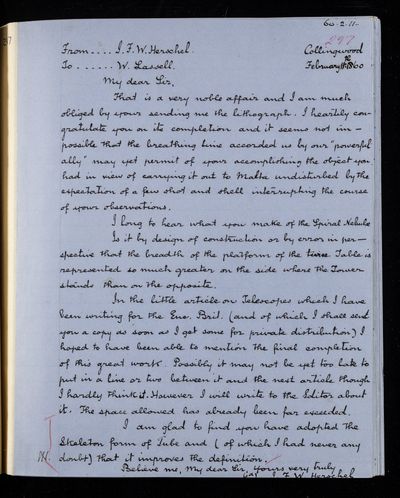 60.2.11.
297
From .... J. F. W. Herschel. Collingwood
To ...... W. Lassell. February 11th 1860
My dear Sir,
That is a very noble affair and I am much
obliged by your sending me the lithograph. I heartily con-
gratulate you on its completion and it seems not im-
possible that the breathing time accorded us by our "powerful
ally" may yet permit of your accomplishing the object you
had in view of carrying it out to Malta undisturbed by the
expectation of a few shot and shell interrupting the course
of your observations.
I long to hear what you make of the Spiral Nebulæ
Is it by design of construction or by error in per-
spective that the breadth of the platform of the Table is
represented so much greater on the side where the Tower
stands than on the opposite.
In the little article on Telescopes which I have
been writing for the Enc. Brit. (and of which I shall send
you a copy as soon as I get some for private distribution) I
hoped to have been able to mention the final completion
of this great work. Possibly it may not be yet too late to
put in a line or two between it and the next article though
I hardly think it. However I will write to the Editor about
it. The space allowed has already been far exceeded.
I am glad to find you have adopted the
Skeleton form of Tube and (of which I had never any
doubt) that it improves the definition.
Believe me, My dear Sir, yours very truly
J. F. W. Herschel